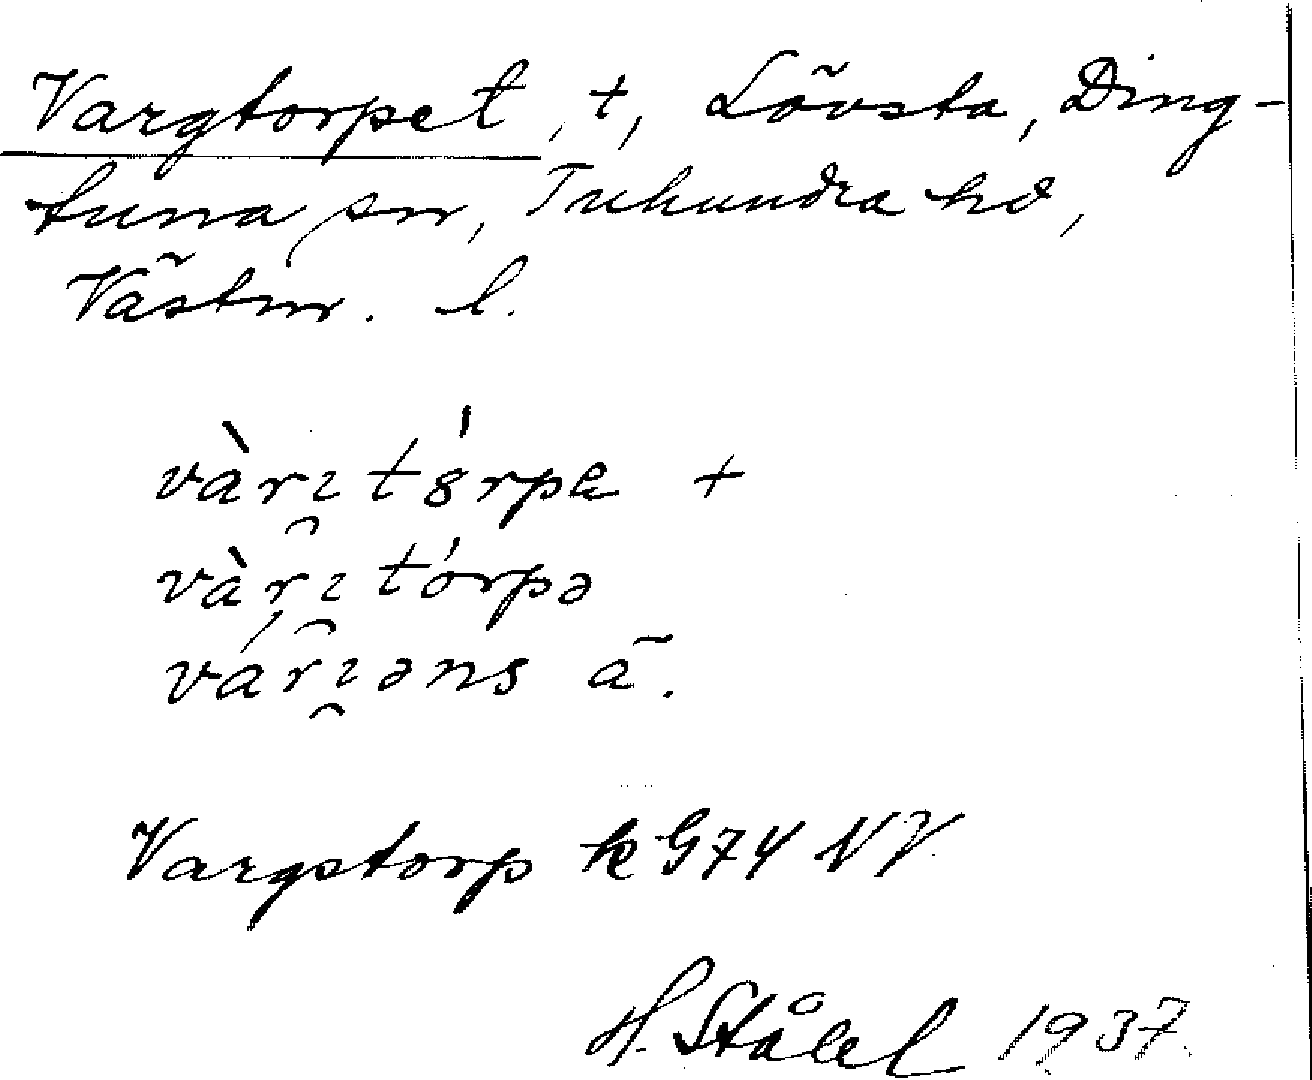 Vargtorpet, t, Lövsta, Ding-
tuna sn, Tuhundra hd,
Västm. l.
vàrꝛtórpe +
vàrꝛtórpə
várꝛəns ā.
Vargstorp k G74 NV
H. Ståhl 1937.